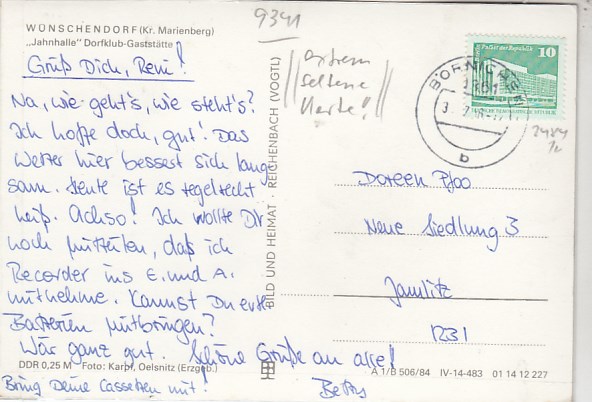 WÜNSCHENDORF (Kr. Marienberg)
„Jahnhalle" Dorfklub-Gaststätte
Grüß Dich, Reni!
Na, wie geht's, wie steht's?
Ich hoffe doch, gut! Das
Wetter hier bessert sich lang-
sam. Heute ist es regelrecht
heiß. Achso! Ich wollte Dir
noch mitteilen, daß ich
Recorder ins E. und A.
mitnehme. Kannst Du evtl.
Batterien mitbringen?
Wär ganz gut. Schöne Grüße an alle!
DDR 0,25 M Foto: Karpf, Oelsnitz (Erzgeb.)
Bring Deine Cassetten mit!
BILD UND HEIMAT · REICHENBACH (VOGTL)
9341
extrem
seltene
Karte!
Palast der Republik 10
DEUTSCHE DEMOKRATISCHE REPUBLIK
b
2484
Doreen
Neue Siedlung 3
Jamlitz
1231
A 1/B 506/84 IV-14-483 01 14 12 227